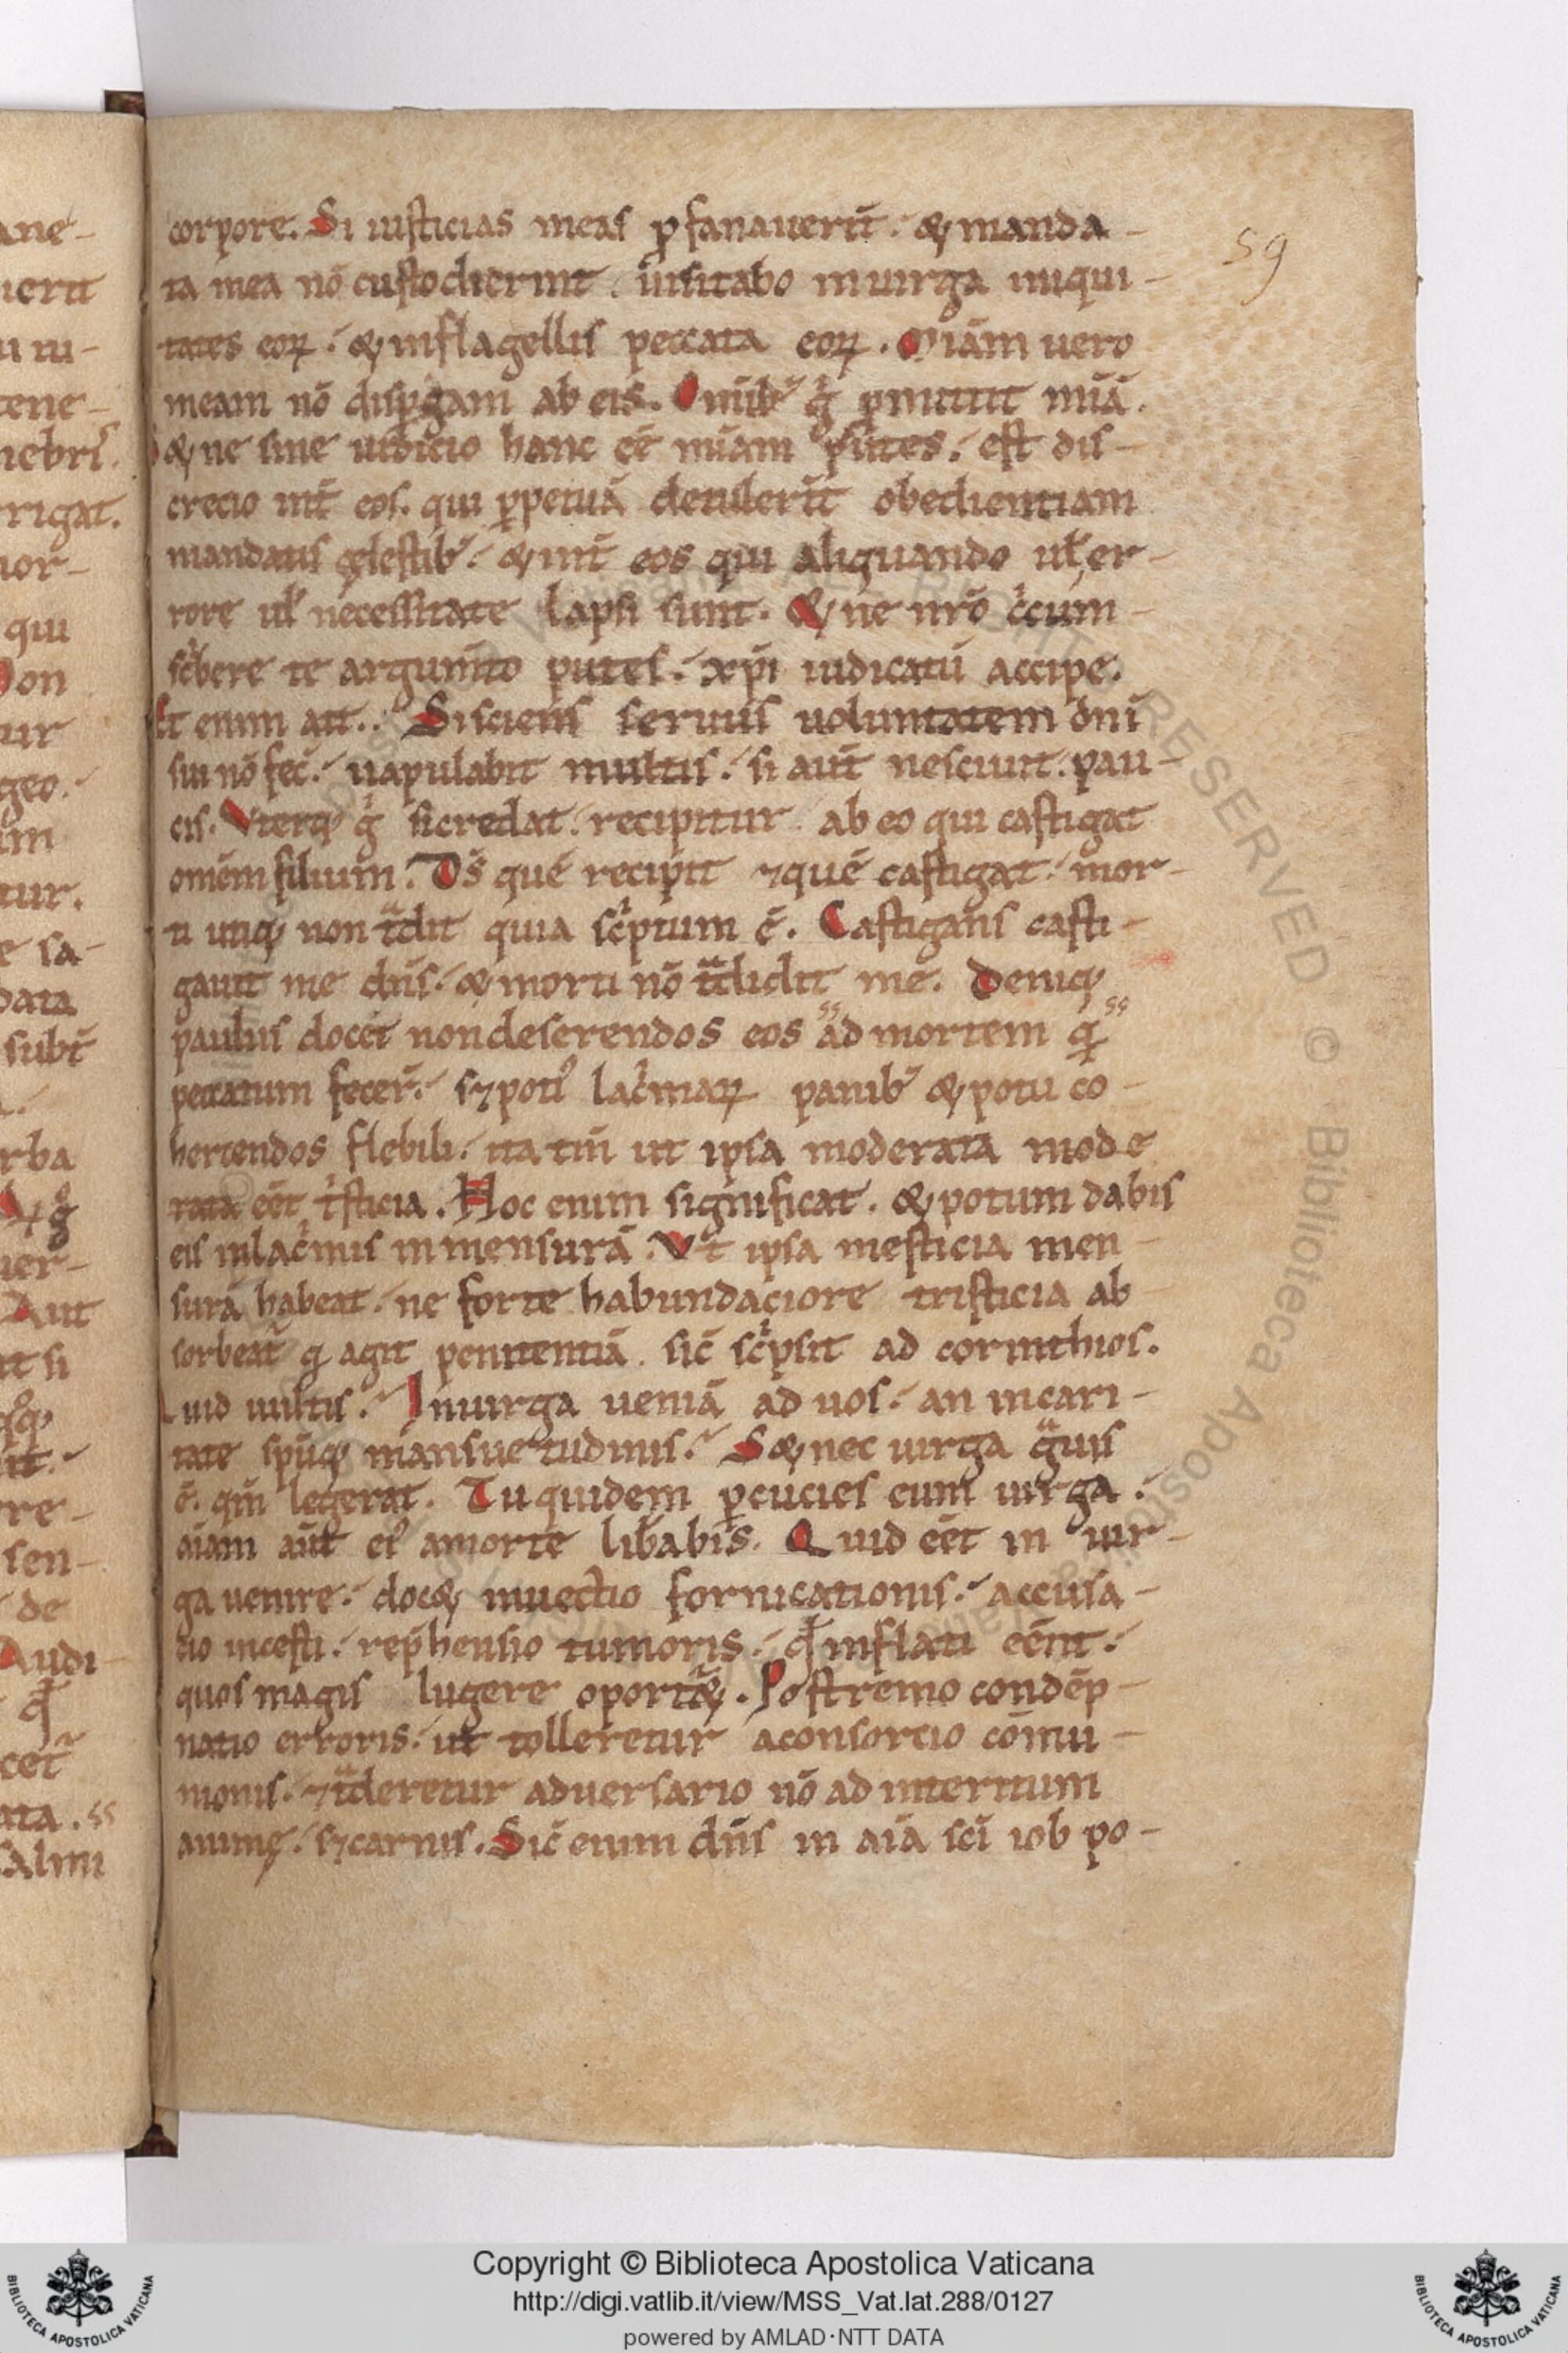 corpore. Si iusticias meas ꝓfanauerīt. & manda-
ta mea nō custodierint. uisitabo inuirga iniqui-
tates eoꝝ. & inflagellis peccata eoꝝ. Miām uero
meam nō dispgam ab eis. Omīb; gͦ ꝓmittit miā.
& ne sine iudicio hanc eē miam putes. est dis-
crecio int̄ eos. qui ꝑpetuā detulerīt obedientiam
mandatis cęlestib; & int̄ eos qui aliquando ul̄ er-
rore ul̄ necessitate lapsi sunt. & ne nrō cͥcum-
scͥbere te argum̄to putes. xp̄i iudicatū accipe.
Ait enim ait. Si sciens seruus uoluntatem dn̄i
sui nō fec̄. uapulabit multis. si aut̄ nesciuit. pau-
cis. Vterq; gͦ si credat. recipitur ab eo qui castigat
omēm filium. Ds̄ quē recipit ⁊ quē castigat. mor-
ti utiq; non tͣdit quia scͥptum ē. Castigans casti-
gauit me dn̄s. & morti nō tͣdidit me. Deniq;
paulus docet non deserendos eos ad mortem qͥ
peccatum fecer̄. s; potiꝰ lacͥmaꝝ panib; & potu co-
hercendos flebili. ita tm̄ ut ipsa moderata mode
rata eēt tͥsticia. Hoc enim significat. & potum dabis
eis inlacͥmis inmensurā. Vt ipsa mesticia men-
surā habeat. ne forte habundaciore tristicia ab
sorbeat̄ q agit penitentiā. sic̄ scͥpsit ad corinthios.
Quid uultis. Inuirga ueniā ad uos. an incari-
tate spūq; mansuetudinis. S& nec uirga gͣuis
ē. qm̄ legerat. Tu quidem ꝑcucies eum uirga.
aīam aut̄ eiꝰ amorte lib̄abis. Quid eēt in uir-
ga uenire. doc& inuectio fornicationis. accusa-
tio incesti. rep̄hensio tumoris. qd̄ inflati eēnt.
quos magis lugere oport&. Postremo condēp-
natio erroris. ut tolleretur aconsorcio cōmu-
nionis. ⁊ tͣderetur aduersario nō ad interitum
animę. s; carnis. Sic̄ enim dn̄s in aīa sc̄i iob po-
59
Copyright © Biblioteca Apostolica Vaticana
http://digi.vatlib.it/view/MSS_Vat.lat.288/0127
powered by AMLAD·NTT DATA